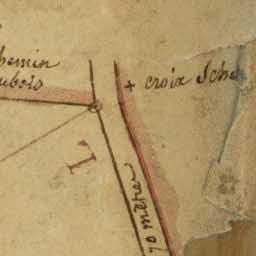 hemin
ubois
+ croix Sche
70 mètres